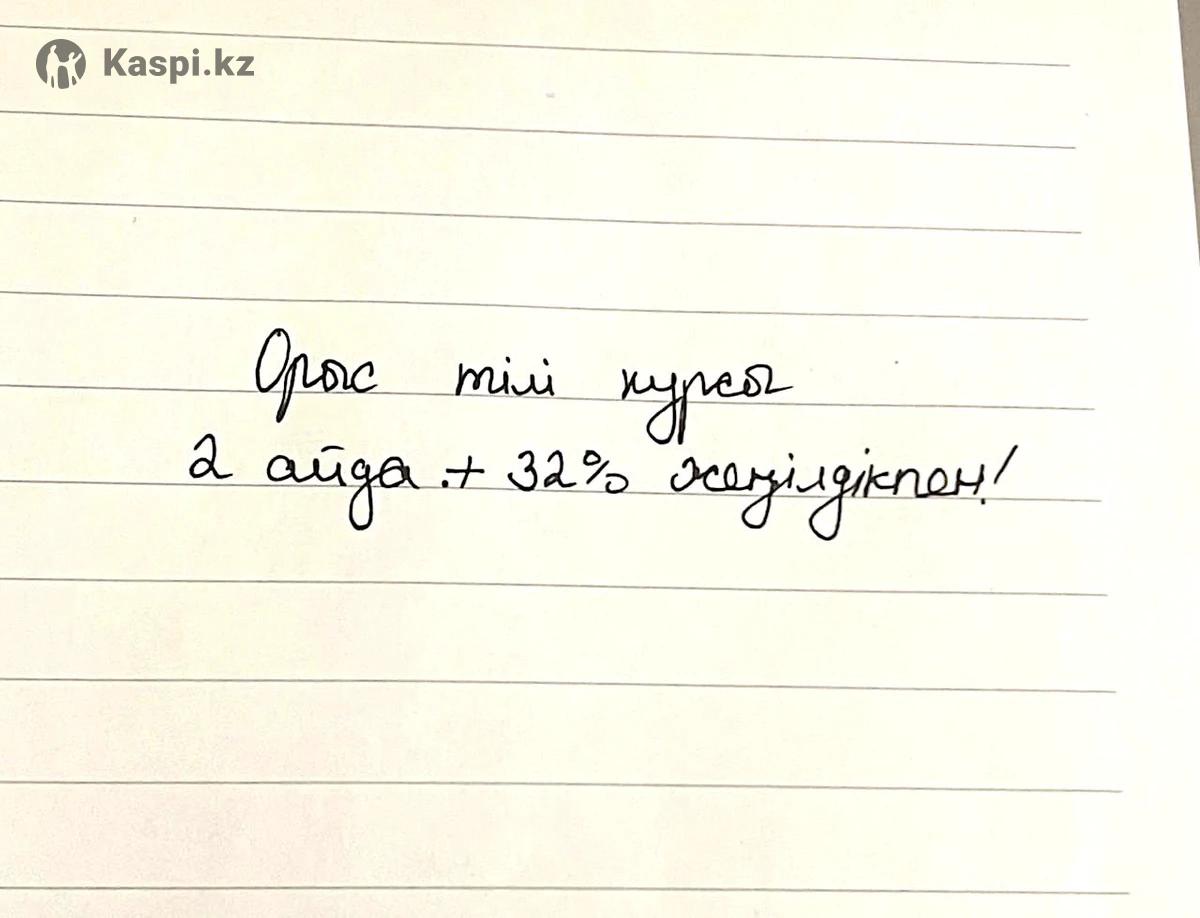 Kaspi.kz
Орыс тілі курсы
2 айда + 32% жеңілдікпен!